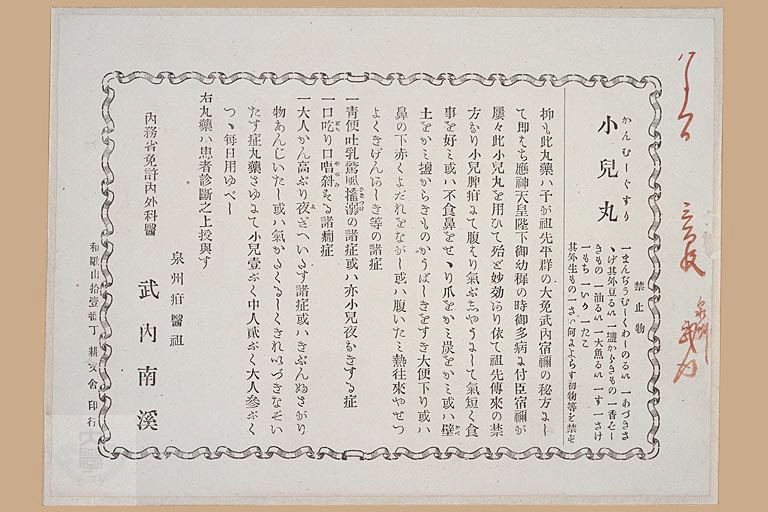 かんむしぐすり
小兒丸
禁止物
一まんぢうむしくわしのるい 一あづきさ
きもの 一油るい 一大魚るい 一す 一さけ
一もち 一いか 一たこ
抑も此丸藥ハ予が祖先平群の大免武内宿禰の秘方にし
て即はち應神天皇陛下御幼稺の時御多病に付臣宿禰が
屢々此小兒丸を用ひて殆ど妙効あり依て祖先傳來の禁
方なり小兒脾疳にて腹はり氣ぶしやうにして氣短く食
事を好ミ或ハ不食鼻をせゝり爪をかミ炭をかミ或ハ壁
土をかミ鹽からきものかうばしきをすき大便下り或ハ
鼻の下赤くよだれをながし或ハ腹いたミ熱往來やせつ
よくきげんあしき等の諸症
一靑便吐乳驚風搐溺の諸症或ハ亦小兒夜なきする症
一口吃り口喎斜する諸癇症
一大人かん高ぶり夜ぎへいさす諸症或ハきぶんぬさがり
物あんじいたし或ハ氣かるくるしくきれいづきなそい
たす症丸藥さゆにて小兒壹ぶく中人貳ぶく大人參ぶく
つゝ毎日用ゆべし
右丸藥ハ患者診斷之上投與す
内務省免許内外科醫
泉州疳醫祖
武内南溪
和歌山拾壹番丁 耕文舍印行